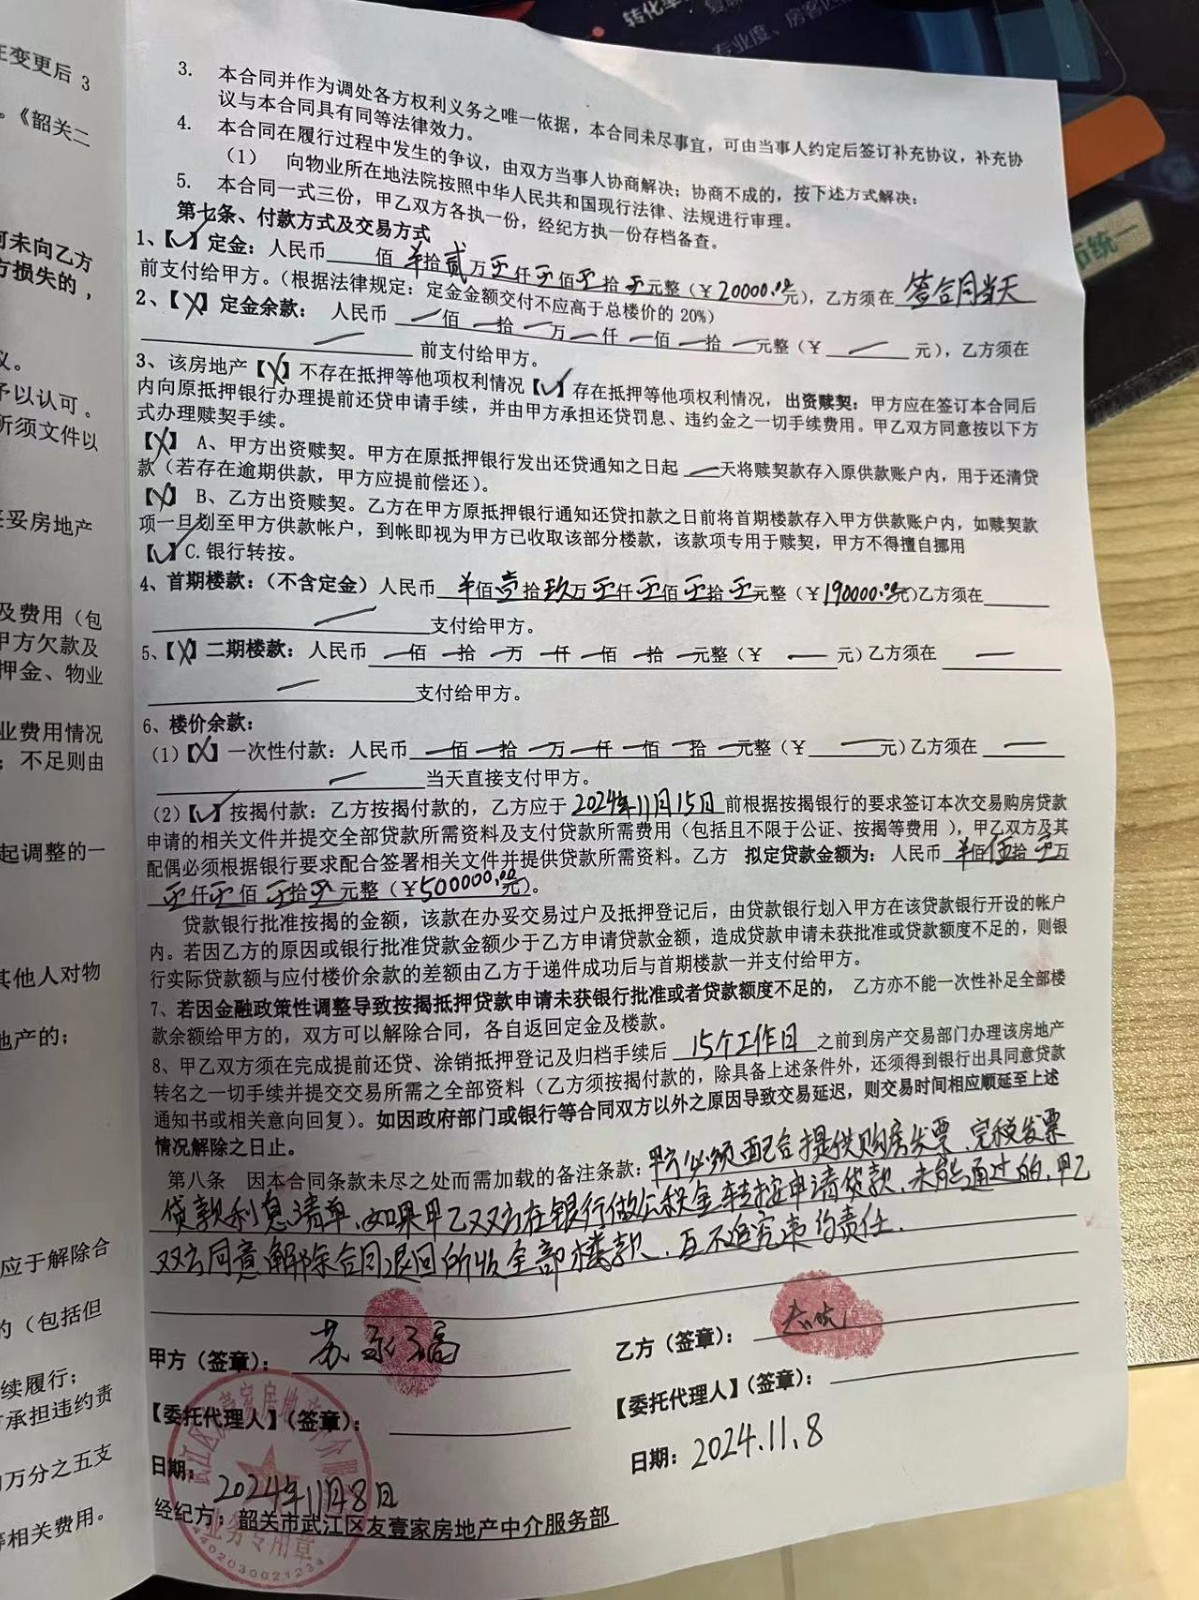 转化率
复聊
专业度、房客匹
占统一
在变更后 3
。《韶关二
何未向乙方
方损失的，
议。
予以认可。
所须文件以
妥妥房地产
及费用（包
甲方欠款及
押金、物业
业费用情况
；不足则由
起调整的一
其他人对物
地产的；
应于解除合
的（包括但
续履行；
方承担违约责
万分之五支
等相关费用。
3. 本合同并作为调处各方权利义务之唯一依据，本合同未尽事宜，可由当事人约定后签订补充协议，补充协
议与本合同具有同等法律效力。
4. 本合同在履行过程中发生的争议，由双方当事人协商解决；协商不成的，按下述方式解决：
（1） 向物业所在地法院按照中华人民共和国现行法律、法规进行审理。
5. 本合同一式三份，甲乙双方各执一份，经纪方执一份存档备查。
第七条、付款方式及交易方式
1、【✓】定金：人民币 佰 半拾贰万 仟 佰 拾 元整（￥20000.00元），乙方须在 签合同当天
前支付给甲方。（根据法律规定：定金金额交付不应高于总楼价的 20%）
2、【X】定金余款： 人民币 一佰 一拾 一万 一仟 一佰 一拾 一元整（￥ 一 元），乙方须在
前支付给甲方。
3、该房地产【X】不存在抵押等他项权利情况【✓】存在抵押等他项权利情况，出资赎契：甲方应在签订本合同后
内向原抵押银行办理提前还贷申请手续，并由甲方承担还贷罚息、违约金之一切手续费用。甲乙双方同意按以下方
式办理赎契手续。
【X】 A、甲方出资赎契。甲方在原抵押银行发出还贷通知之日起 一天将赎契款存入原供款账户内，用于还清贷
款（若存在逾期供款，甲方应提前偿还）。
【X】 B、乙方出资赎契。乙方在甲方原抵押银行通知还贷扣款之日前将首期楼款存入甲方供款账户内，如赎契款
项一旦划至甲方供款帐户，到帐即视为甲方已收取该部分楼款，该款项专用于赎契，甲方不得擅自挪用
【✓】C.银行转按。
4、首期楼款：（不含定金）人民币 半佰壹拾玖万 仟 佰 拾 元整（￥190000.00元）乙方须在
支付给甲方。
5、【X】二期楼款：人民币 一佰 一拾 一万 一仟 一佰 一拾 一元整（￥ 一 元）乙方须在 一
一 支付给甲方。
6、楼价余款：
（1）【X】一次性付款：人民币 一佰 一拾 一万 一仟 一佰 一拾 一元整（￥ 一元）乙方须在 一
一 当天直接支付甲方。
（2）【✓】按揭付款：乙方按揭付款的，乙方应于 2024年11月15日 前根据按揭银行的要求签订本次交易购房贷款
申请的相关文件并提交全部贷款所需资料及支付贷款所需费用（包括且不限于公证、按揭等费用 ），甲乙双方及其
配偶必须根据银行要求配合签署相关文件并提供贷款所需资料。乙方 拟定贷款金额为： 人民币 半佰伍拾 万
仟 佰 拾 元整（￥500000.00元）。
贷款银行批准按揭的金额，该款在办妥交易过户及抵押登记后，由贷款银行划入甲方在该贷款银行开设的帐户
内。若因乙方的原因或银行批准贷款金额少于乙方申请贷款金额，造成贷款申请未获批准或贷款额度不足的，则银
行实际贷款额与应付楼价余款的差额由乙方于递件成功后与首期楼款一并支付给甲方。
7、若因金融政策性调整导致按揭抵押贷款申请未获银行批准或者贷款额度不足的， 乙方亦不能一次性补足全部楼
款余额给甲方的，双方可以解除合同，各自返回定金及楼款。
8、甲乙双方须在完成提前还贷、涂销抵押登记及归档手续后 15个工作日 之前到房产交易部门办理该房地产
转名之一切手续并提交交易所需之全部资料（乙方须按揭付款的，除具备上述条件外，还须得到银行出具同意贷款
通知书或相关意向回复）。如因政府部门或银行等合同双方以外之原因导致交易延迟，则交易时间相应顺延至上述
情况解除之日止。
第八条 因本合同条款未尽之处而需加载的备注条款：甲方必须配合提供购房发票、完税发票
贷款利息清单、如果甲乙双方在银行做公积金转按申请贷款、未能通过的、甲乙
双方同意解除合同退回所收全部楼款、互不追究违约责任.
甲方（签章）： 苏 乙方（签章）：
【委托代理人】（签章）： 【委托代理人】（签章）：
日期： 2024年11月8日 日期：2024.11.8
经纪方：韶关市武江区友壹家房地产中介服务部
业务专用章